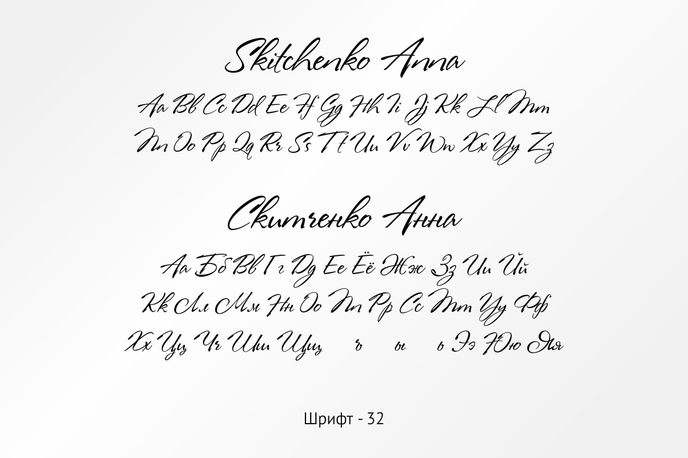 Skitchenko Anna
Aa Bb Cc Dd Ee Ff Gg Hh Ii Jj Kk Ll Mm
Nn Oo Pp Qq Rr Ss Tt Uu Vv Ww Xx Yy Zz
Скитченко Анна
Аа Бб Вв Гг Дд Ее Ёё Жж Зз Ии Йй
Кк Лл Мм Нн Оо Пп Рр Сс Тт Уу Фф
Хх Цц Чч Шш Щщ ъ ы ь Ээ Юю Яя
Шрифт - 32